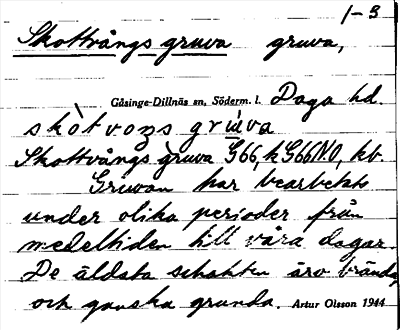 1-3
Skottvångs gruva gruva,
Gåsinge-Dillnäs sn, Söderm. l. Daga hd.
skòtvoŋs gruva
Skottvångs gruva G66, kG66NO, kb.
Gruvan har bearbetats
under olika perioder från
medeltiden till våra dagar.
De äldsta schakten äro brända
och ganska grunda. Artur Olsson 1944